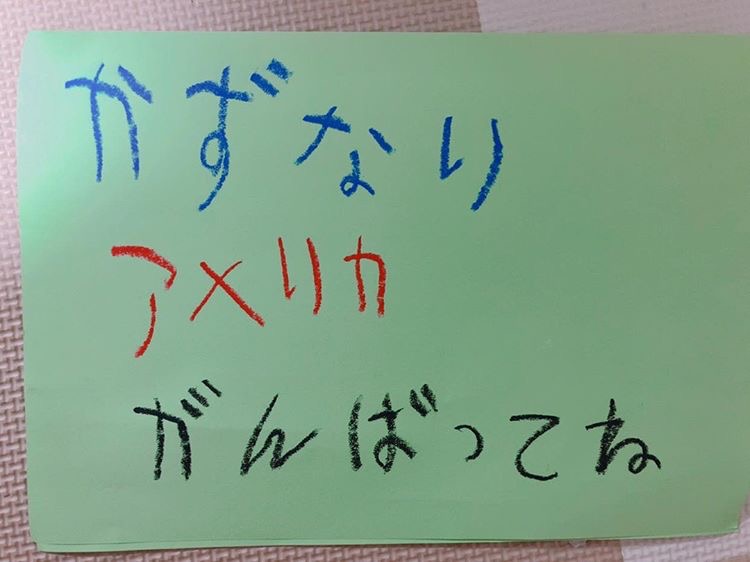 かずなり
アメリカ
がんばってね